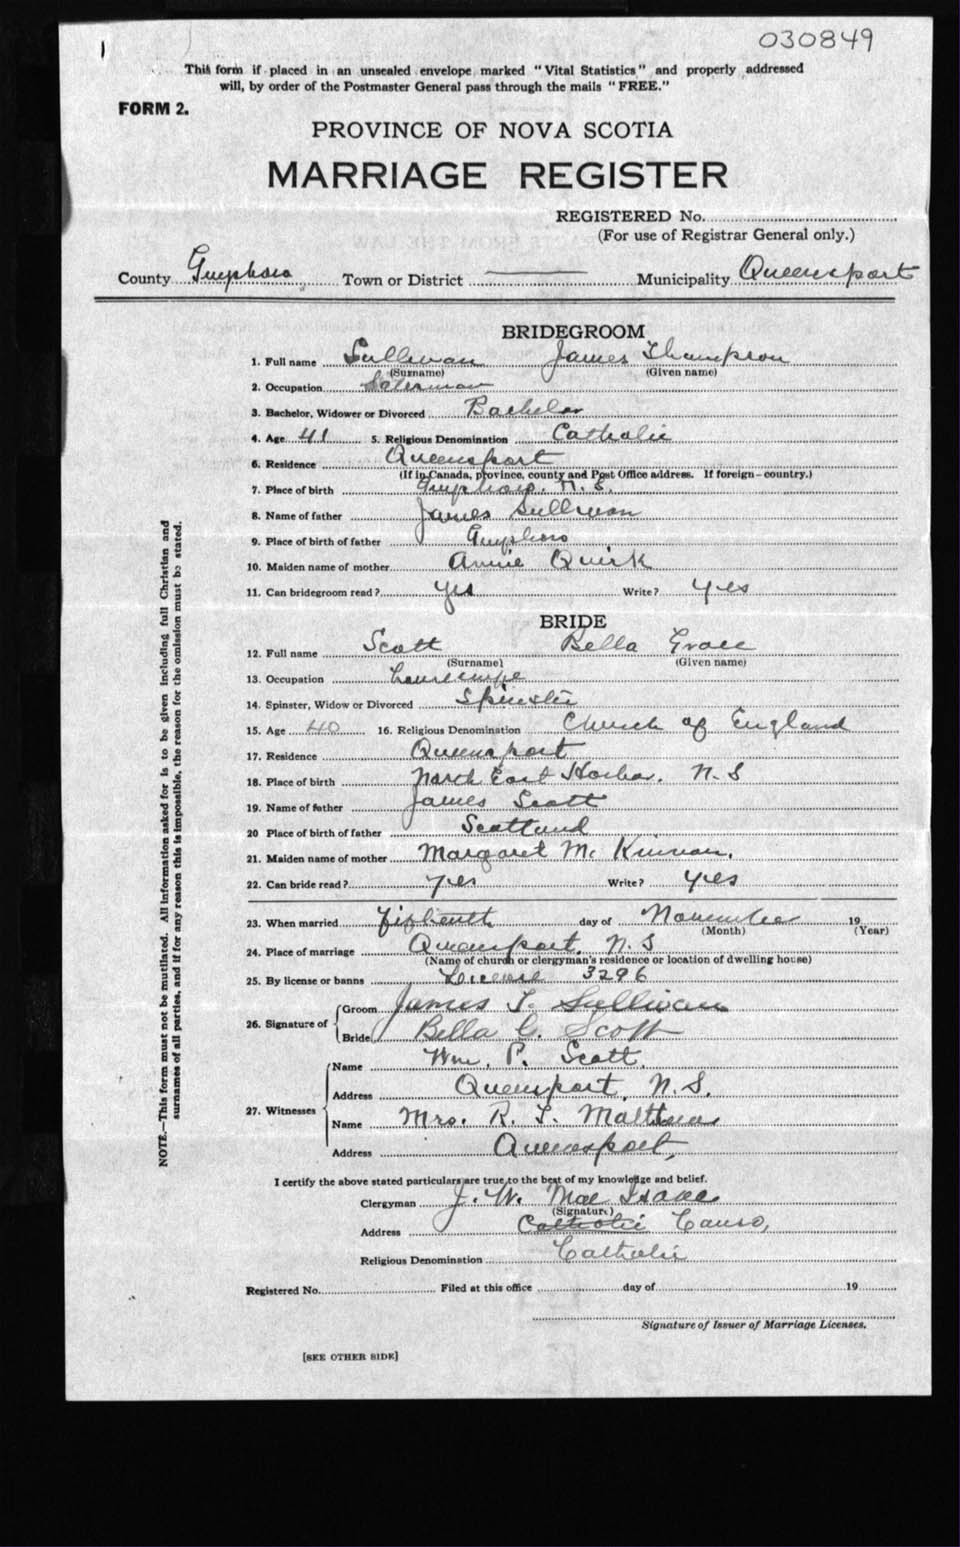 030849
This form if placed in an unsealed envelope marked "Vital Statistics" and properly addressed
will, by order of the Postmaster General pass through the mails "FREE."
FORM 2.
PROVINCE OF NOVA SCOTIA
MARRIAGE REGISTER
REGISTERED No.
(For use of Registrar General only.)
County Guysboro Town or District Municipality Queensport
BRIDEGROOM
1. Full name Sullivan James Thompson
(Surname) (Given name)
2. Occupation
3. Bachelor, Widower or Divorced Bachelor
4. Age 41 5. Religious Denomination Catholic
6. Residence Queensport
(If in Canada, province, county and Post Office address. If foreign—country.)
7. Place of birth Guysboro. N.S.
8. Name of father James Sullivan
9. Place of birth of father Guysboro
10. Maiden name of mother Annie Quirk
11. Can bridegroom read? yes Write? yes
BRIDE
12. Full name Scott Bella Grace
(Surname) (Given name)
13. Occupation
14. Spinster, Widow or Divorced Spinster
15. Age 40 16. Religious Denomination Church of England
17. Residence Queensport
18. Place of birth North East Harbor. N.S
19. Name of father James Scott
20 Place of birth of father Scotland
21. Maiden name of mother Margaret Mc Kinnon.
22. Can bride read? yes Write? yes
23. When married Fifteenth day of November 19
(Month) (Year)
24. Place of marriage Queensport, N.S
(Name of church or clergyman's residence or location of dwelling house)
25. By license or banns License 3296
26. Signature of Groom James T. Sullivan
Bride Bella G. Scott
27. Witnesses
Name Wm. P. Scott.
Address Queensport, N.S.
Name Mrs. R. T. Matthews
Address Queensport,
I certify the above stated particulars are true to the best of my knowledge and belief.
Clergyman J. W. Mac Isaac
(Signature)
Address Catholic Canso,
Religious Denomination Catholic
Registered No. Filed at this office day of 19
Signature of Issuer of Marriage Licenses.
[SEE OTHER SIDE]
NOTE.—This form must not be mutilated. All information asked for is to be given including full Christian and
surnames of all parties, and if for any reason this is impossible, the reason for the omission must be stated.